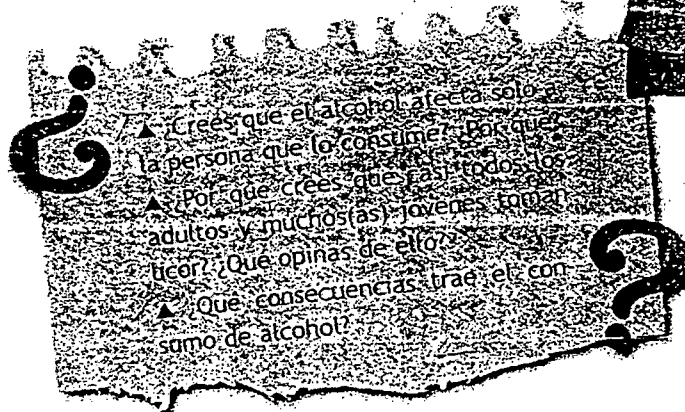 ¿
▲ ¿Crees que el alcohol afecta solo a
la persona que lo consume? ¿Por qué?
▲ ¿Por qué crees que casi todo los
adultos y muchos(as) jóvenes toman
licor? ¿Qué opinas de ello?
▲ ¿Que consecuencias trae el con
sumo de alcohol?
?